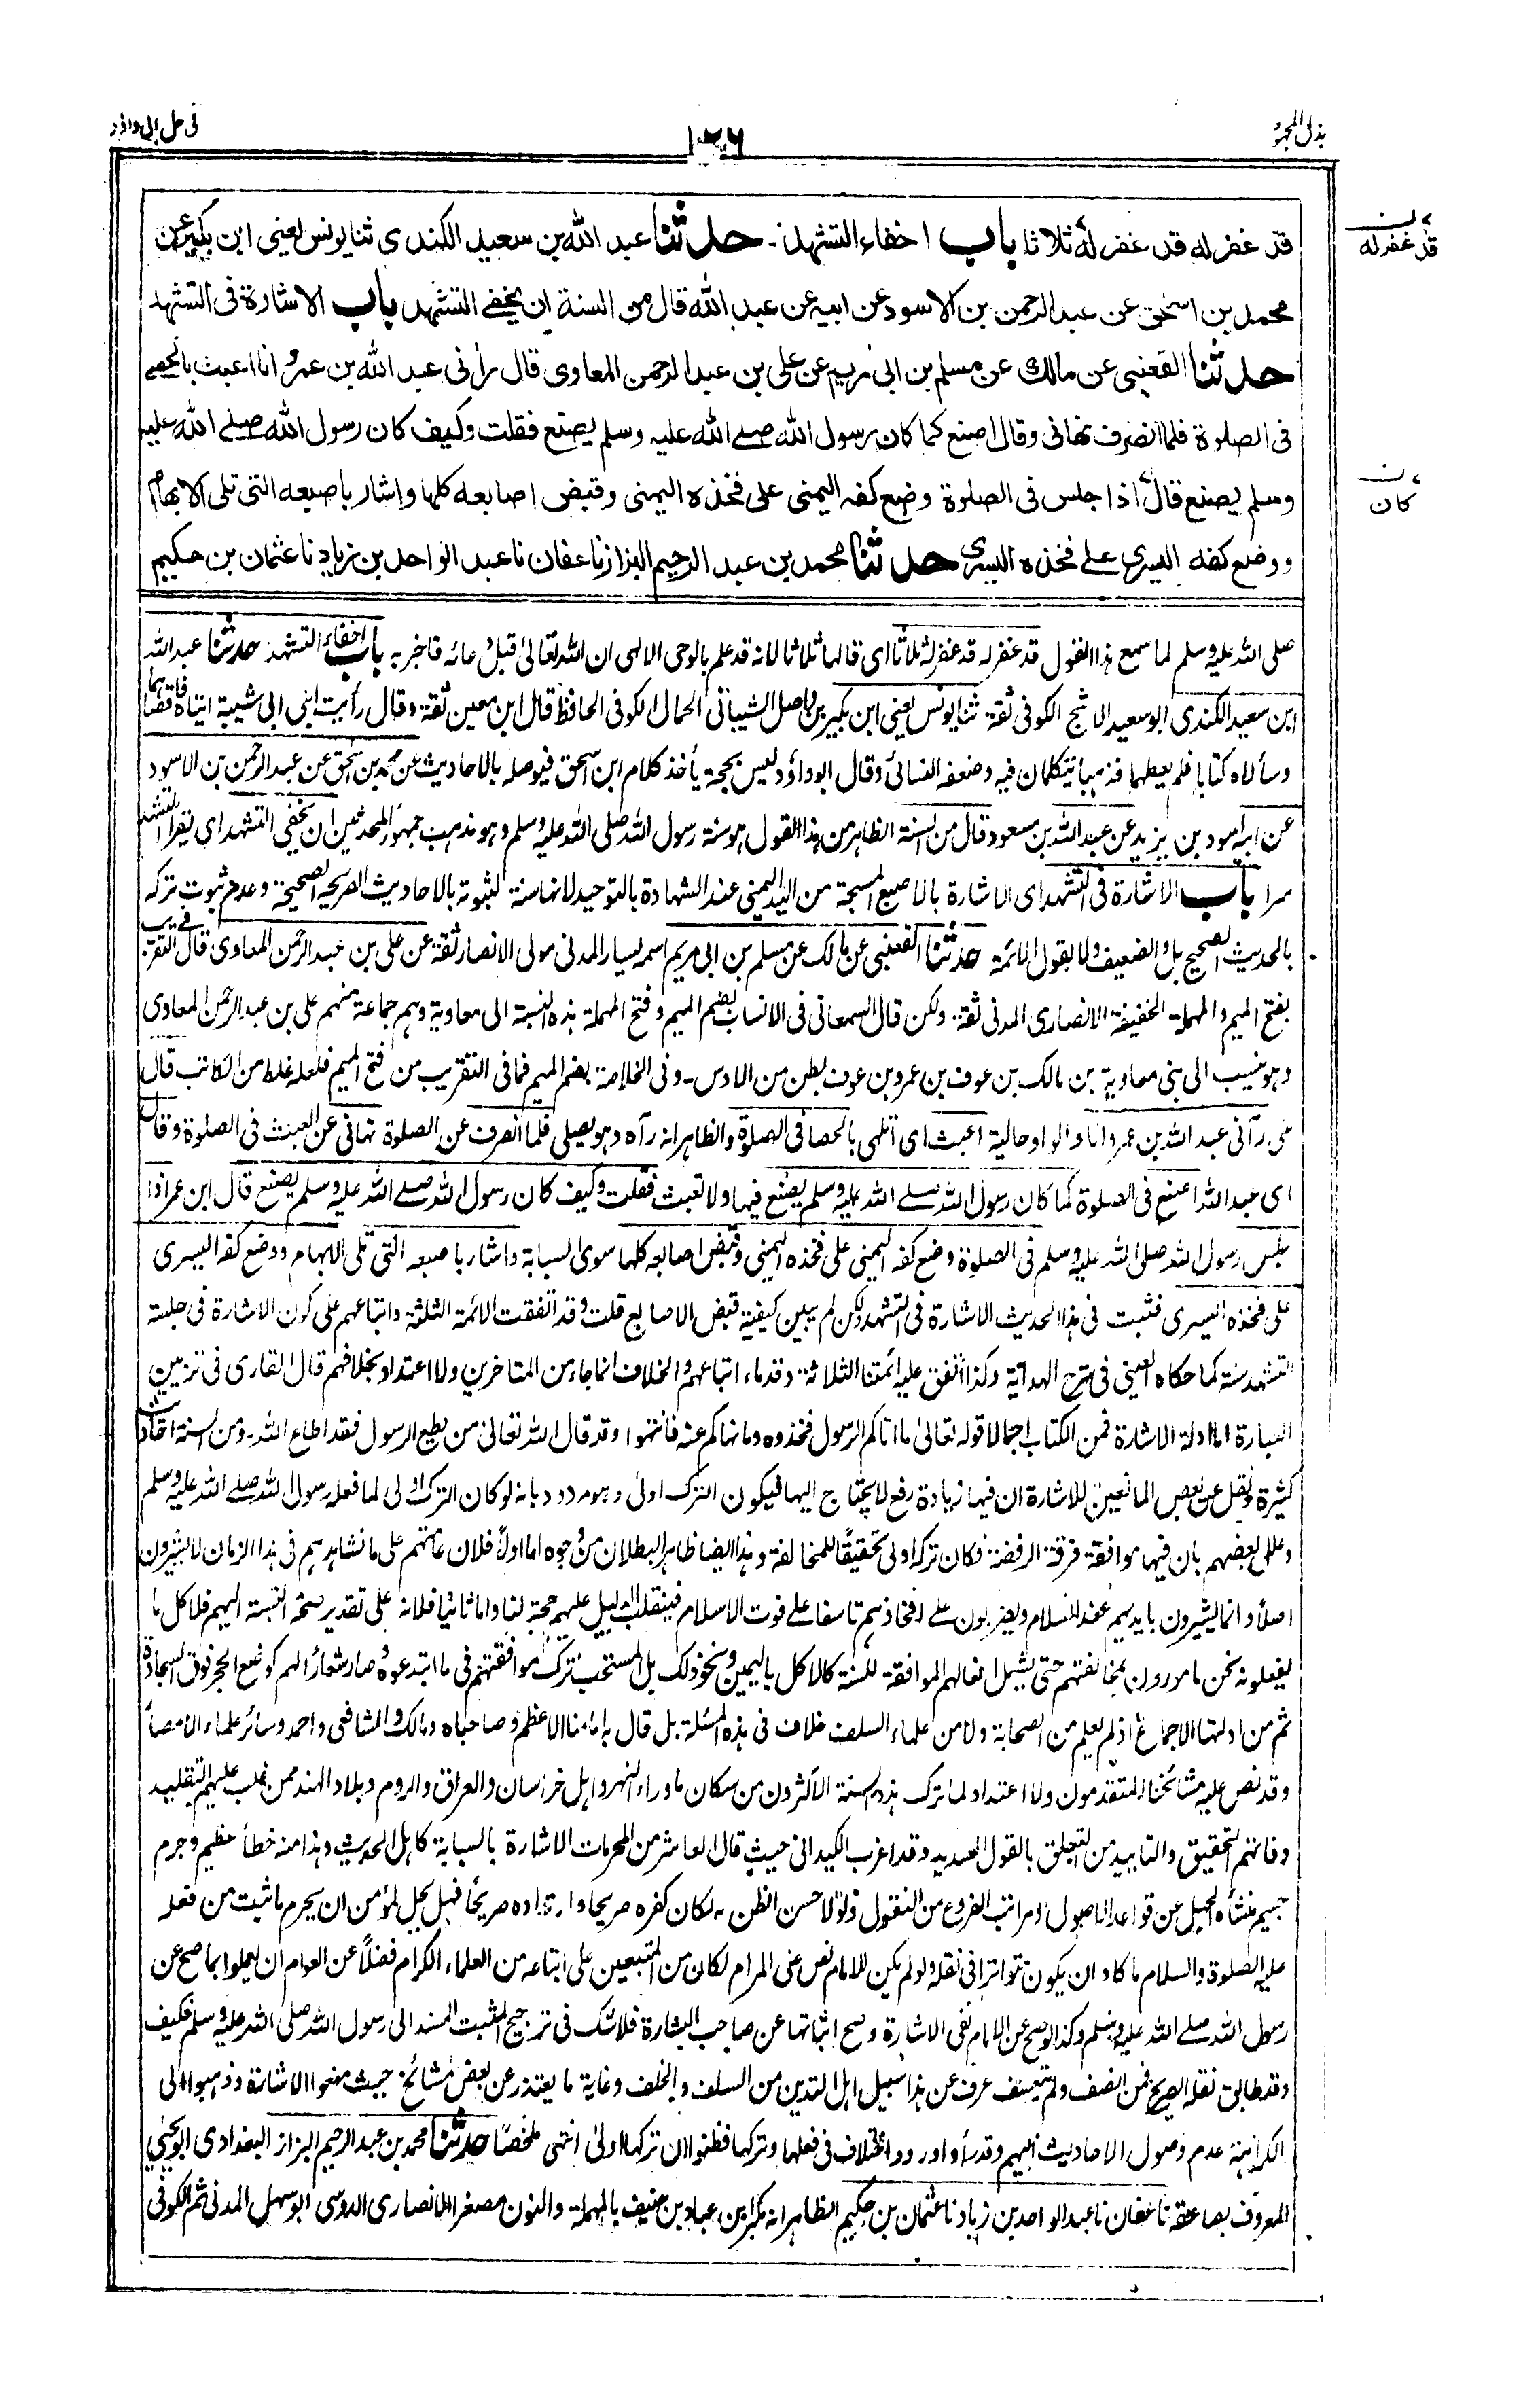 بذل المجهود
١٢٦
فى حل ابى داؤد
قد غفر له قد غفر له ثلاثا باب اخفاء التشهد - حدثنا عبد الله بن سعيد الكندى ثنا يونس يعنى ابن بكير عن
محمد بن اسحق عن عبد الرحمن بن الاسود عن ابيه عن عبد الله قال من السنة ان يخفى التشهد باب الاشارة فى التشهد
حدثنا القعنبى عن مالك عن مسلم بن ابى مريم عن على بن عبد الرحمن المعاوى قال رآنى عبد الله بن عمر وانا اعبث بالحصى
فى الصلوة فلما انصرف نهانى وقال اصنع كما كان رسول الله صلے الله عليه وسلم يصنع فقلت وكيف كان رسول الله صلے الله عليه
وسلم يصنع قال اذا جلس فى الصلوة وضع كفه اليمنى على فخذه اليمنى وقبض اصابعه كلها واشار باصبعه التى تلى الابهام
ووضع كفه اليسرى على فخذه اليسرى حدثنا محمد بن عبد الرحيم البزاز نا عفان نا عبد الواحد بن زياد نا عثمان بن حكيم
ن قد غفر له
ن كان
صلى الله عليه وسلم لما سمع هذا القول قد غفر له قد غفر له ثلاثا اى قالها ثلاثا لانه قد علم بالوحى الالهى ان الله تعالى قبل دعائه فاخبر به باب اخفاء التشهد حدثنا عبد الله
ابن سعيد الكندى ابو سعيد الاشج الكوفى ثقة ثنا يونس يعنى ابن بكير بن واصل الشيبانى الحمال الكوفى الحافظ قال ابن معين ثقة وقال رأيت ابنى ابى شيبة اتياه فاقصاهما
وسألاه كتابا فلم يعطهما فذهبا يتكلمان فيه وضعفه النسائى وقال ابو داؤد ليس بحجة يأخذ كلام ابن اسحق فيوصله بالاحاديث عن محمد بن اسحق عن عبد الرحمن بن الاسود
عن ابيه اسود بن يزيد عن عبد الله بن مسعود قال من السنة الظاهر من هذا القول هو سنة رسول الله صلى الله عليه وسلم وهو مذهب جمهور المحدثين ان يخفى التشهد اى يقرأ التشهد
سرا باب الاشارة فى التشهد اى الاشارة بالاصبع المسبحة من اليد اليمنى عند الشهادة بالتوحيد لانها سنة لثبوته بالاحاديث الصريحة الصحيحة وعدم ثبوت تركه
بالحديث الصحيح بل والضعيف ولا بقول الائمة حدثنا القعنبى عن مالك عن مسلم بن ابى مريم اسمه يسار المدنى مولى الانصار ثقة عن على بن عبد الرحمن المعاوى قال فى التقريب
بفتح الميم والمهملة الخفيفة الانصارى المدنى ثقة ولكن قال السمعانى فى الانساب بضم الميم وفتح المهملة هذه النسبة الى معاوية وهم جماعة منهم على بن عبد الرحمن المعاوى
وهو منسب الى بنى معاوية بن مالك بن عوف بن عمرو بن عوف بطن من الاوس - وفى الخلاصة بضم الميم فما فى التقريب من فتح الميم فلعله غلط من الكاتب قال
على رآنى عبد الله بن عمر وانا والواو حالية اعبث اى اتلهى بالحصا فى الصلوة والظاهر انه رآه وهو يصلى فلما انصرف عن الصلوة نهانى عن العبث فى الصلوة وقال
اى عبد الله اصنع فى الصلوة كما كان رسول الله صلے الله عليه وسلم يصنع فيها ولا تعبث فقلت وكيف كان رسول الله صلے الله عليه وسلم يصنع قال ابن عمر اذا
جلس رسول الله صلى الله عليه وسلم فى الصلوة وضع كفه اليمنى على فخذه اليمنى وقبض اصابعه كلها سوى السبابة واشار باصبعه التى تلى الابهام ووضع كفه اليسرى
على فخذه اليسرى فثبت فى هذا الحديث الاشارة فى التشهد ولكن لم يبين كيفية قبض الاصابع قلت وقد اتفقت الائمة الثلثة واتباعهم على كون الاشارة فى جلسة
التشهد سنة كما حكاه العينى فى شرح الهداية وكذا اتفق عليه ائمتنا الثلاثة وقدماء اتباعهم والخلاف انما جاء من المتاخرين ولا اعتداد بخلافهم قال القارى فى تزيين
العبارة اما ادلة الاشارة فمن الكتاب اجمالا قوله تعالى ما اتاكم الرسول فخذوه وما نهاكم عنه فانتهوا وقد قال الله تعالى من يطع الرسول فقد اطاع الله - ومن السنة احاديث
كثيرة ونقل عن بعض المانعين للاشارة ان فيها زيادة رفع لا يحتاج اليها فيكون الترك اولى وهو مردود بانه لو كان الترك اولى لما فعله رسول الله صلے الله عليه وسلم
وعلل بعضهم بان فيها موافقة فرقة الرفضة فكان تركه اولى تحقيقا للمخالفة وهذا ايضا ظاهر البطلان من وجوه اما اولا فلان عامتهم على ما نشاهدهم فى هذا الزمان لا يشيرون
اصلا وانما يشيرون بايديهم عند السلام ويضربون على افخاذهم تاسفا على فوت الاسلام فينقلب الدليل عليهم حجة لنا واما ثانيا فلانه على تقدير صحة النسبة اليهم فلا كل ما
يفعلونه نحن مامورون بمخالفتهم حتى يشمل افعالهم الموافقة للسنة كالاكل باليمين ونحو ذلك بل المستحب ترك موافقتهم فى ما ابتدعوه وصار شعارا لهم كوضع الحجر فوق السجادة
ثم من ادلتها الاجماع اذ لم يعلم من الصحابة ولا من علماء السلف خلاف فى هذه المسئلة بل قال به امامنا الاعظم وصاحباه ومالك والشافعى واحمد وسائر علماء الامصار
وقد نص عليه مشائخنا المتقدمون ولا اعتداد لما ترك هذه السنة الاكثرون من سكان ماوراء النهر واهل خراسان والعراق والروم وبلاد الهند ممن غلب عليهم التقليد
وفاتهم التحقيق والتاييد من التعلق بالقول السديد وقد اغرب الكيدانى حيث قال العاشر من المحرمات الاشارة بالسبابة كاهل الحديث وهذا منه خطأ عظيم وجرم
جسيم منشأه الجهل عن قواعد الاصول ومراتب الفروع من النقول ولولا حسن الظن به لكان كفره صريحا وارتداده صريحا فهل يحل لمؤمن ان يحرم ما ثبت من فعله
عليه الصلوة والسلام ما كاد ان يكون متواترا فى نقله ولو لم يكن للامام نص على المرام لكان من المتبعين على اتباعه من العلماء الكرام فضلا عن العوام ان يعملوا بما صح عن
رسول الله صلے الله عليه وسلم وكذا لو صح عن الامام نفى الاشارة وصح اثباتها عن صاحب البشارة فلا شك فى ترجيح المثبت المسند الى رسول الله صلى الله عليه وسلم فكيف
وقد طابق نقله الصريح فمن انصف ولم يتعسف عرف عن هذا سبيل اهل التدين من السلف والخلف وغاية ما يعتذر عن بعض مشائخ حيث منعوا الاشارة وذهبوا الى
الكراهة عدم وصول الاحاديث اليهم وقد رأوا ورود اختلاف فى فعلها وتركها فظنوا ان تركها اولى انتهى ملخصا حدثنا محمد بن عبد الرحيم البزاز البغدادى ابو يحيى
المعروف بصاعقة نا عفان نا عبد الواحد بن زياد نا عثمان بن حكيم الظاهر انه بن عباد بن حنيف بالمهملة والنون مصغرا الانصارى الاوسى ابو سهل المدنى ثم الكوفى